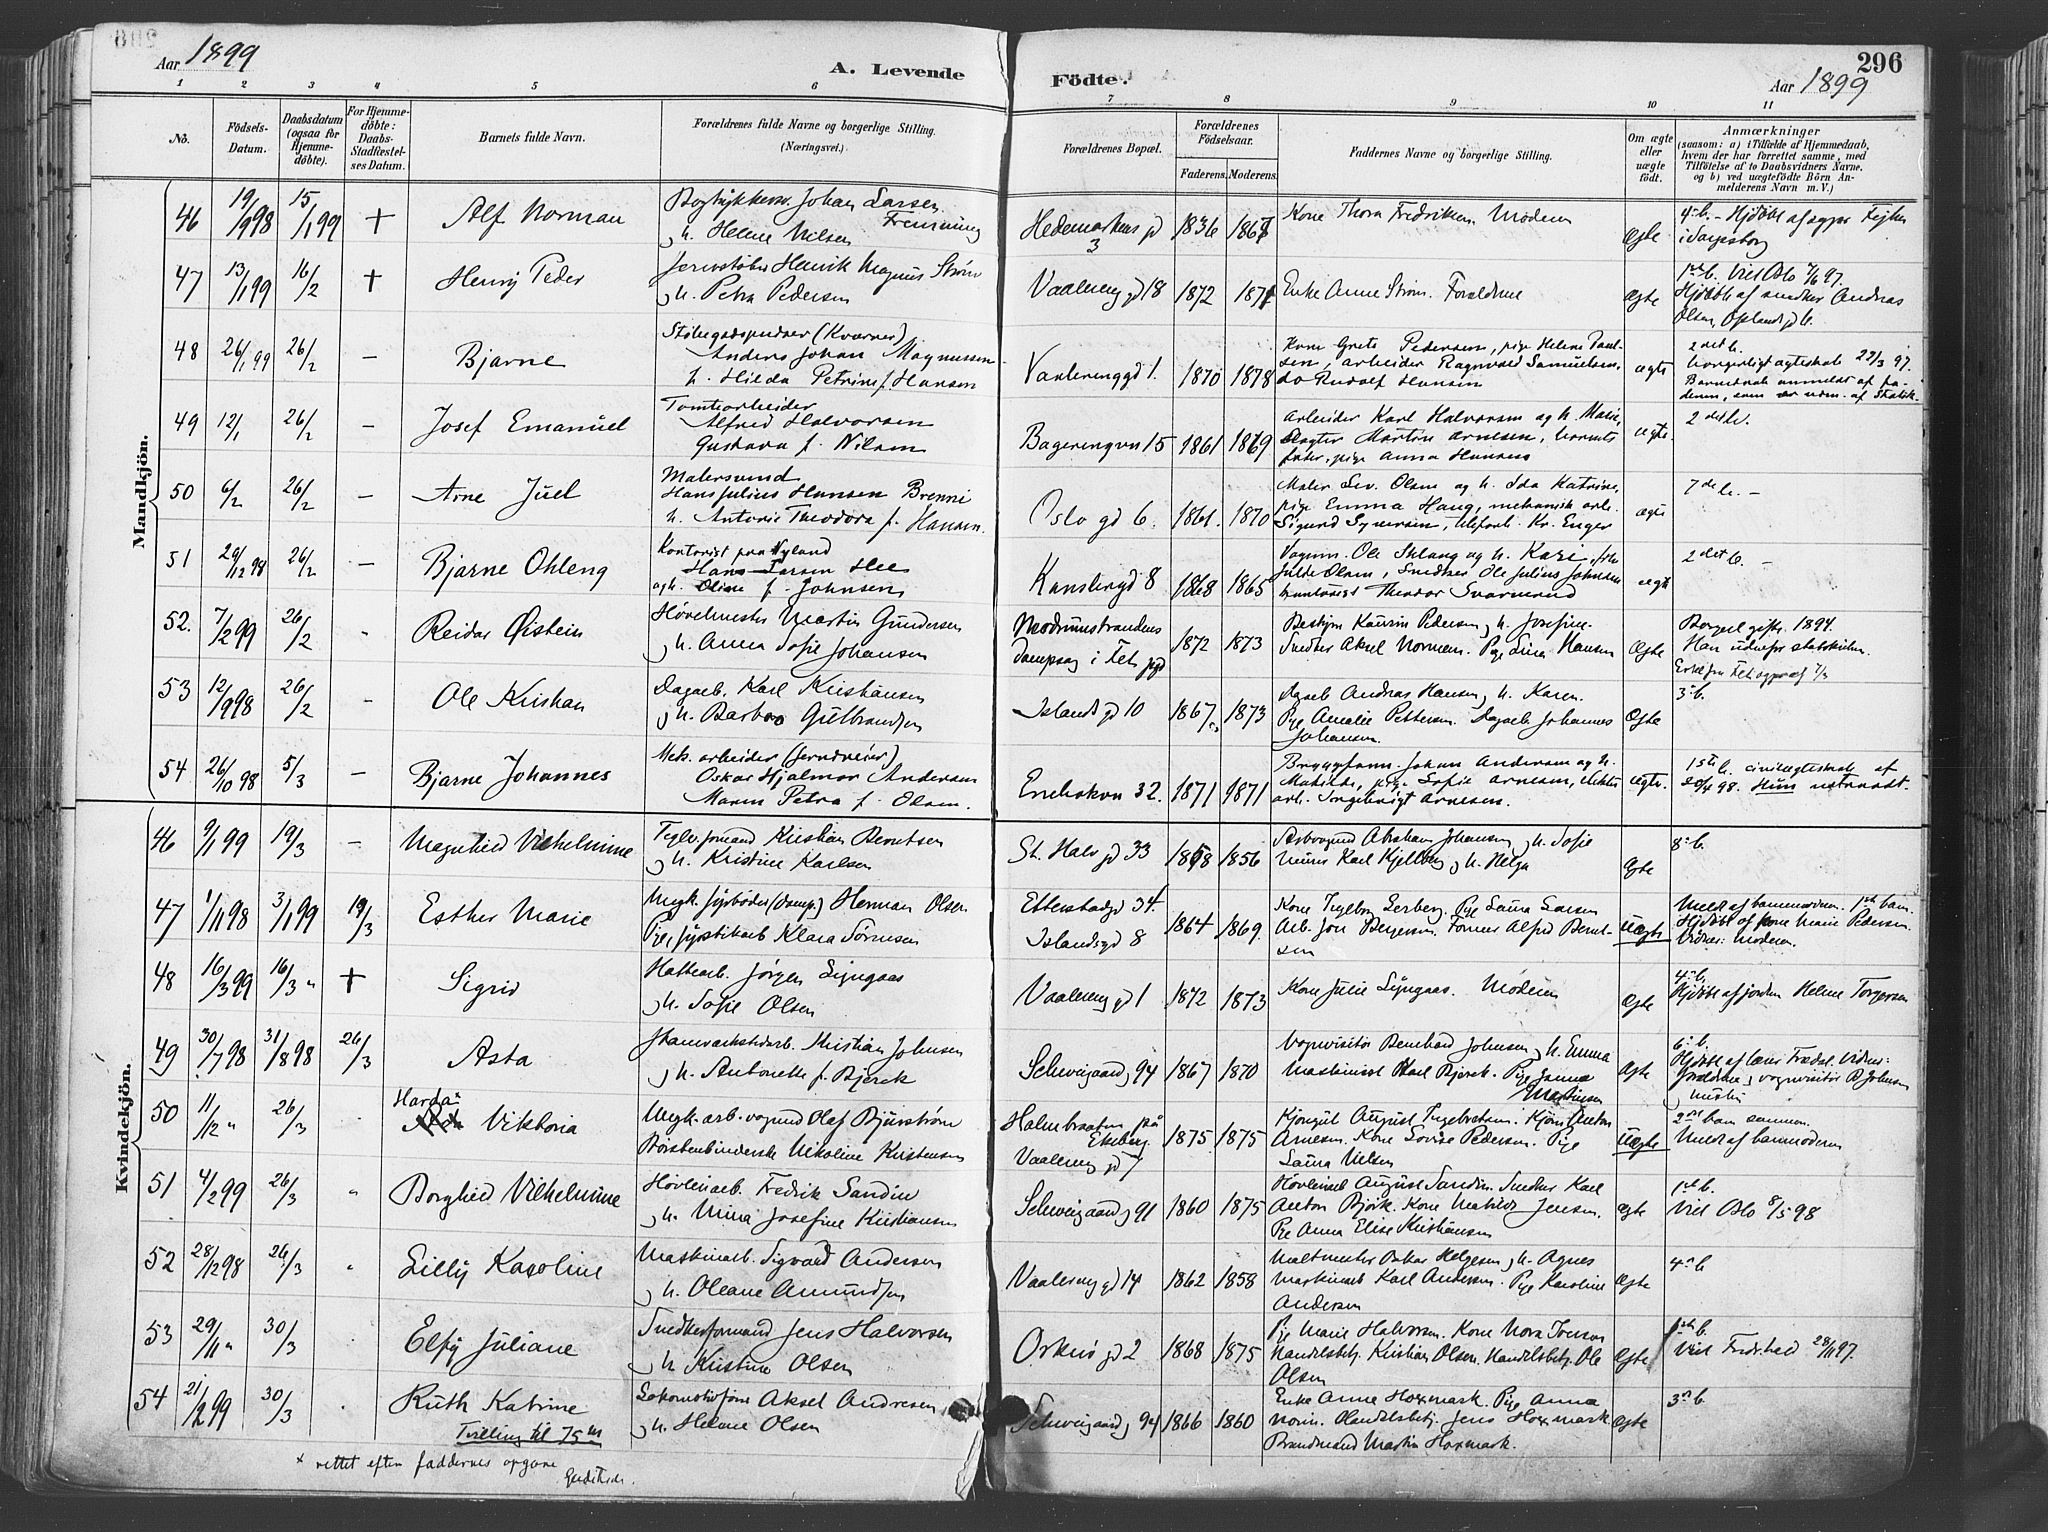 Aar 1899
A. Levende
Födte.
296
Aar 1899
1 2 3 4 5 6 7 8 9 10 11
No.
Födsels-
Datum.
Daabsdatum
(ogsaa for
Hjemme-
döbte).
For Hjemme-
döbte:
Daabs-
Stadfæstel-
ses Datum.
Barnets fulde Navn.
Forældrenes fulde Navne og borgerlige Stilling.
(Næringsvei.)
Forældrenes Bopæl.
Forældrenes
Födselsaar.
Faderens. Moderens.
Faddernes Navne og borgerlige Stilling.
Om ægte
eller
uægte
födt.
Anmærkninger
(saasom: a) i Tilfælde af Hjemmedaab,
hvem der har forrettet samme, med
Tilföielse af to Daabsvidners Navne.
og b) ved uægtefödte Börn An-
melderens Navn m. V.)
Mandkjön.
46 19/9 98 15/1 99 + Alf Norman
Johan Larsen
Fremming
h. Helene Nilsen
Hedemarkens gd 3 1836 1867
Kone Thora Fredriksen. Moderen
Ægte
4de b. – Hjdöbt af
i Sarpsborg
47 13/1 99 16/2 + Henry Peder
Jernstöber Henrik Magnus Ström
h. Petra Pedersen
Vaalereng gd 18 1872 1871
Enke Anne Ström. Forældrene
Ægte
1ste b. Viet Oslo 97.
Hjdöbt af snedker Andreas
Olsen, Oplands gd 6.
48 26/1 99 26/2 – Bjarne
Stöbegodspudser (Kværner)
Anders Johan Magnussen
h. Hilda Petrine f. Hansen
Vaalerenggd 1. 1870 1878
Kone Grete Pedersen, pige Helene Paul-
sen, arbeider Ragnvald Samuelsen,
do Rudolf Hansen
ægte
2det b.
borgerligt ægteskab 22/3 97.
49 12/1 26/2 – Josef Emanuel
Tomtearbeider
Alfred Halvorsen
Gustava f. Nilsen
Bagerengvn 15 1861 1869
Arbeider Karl Halvorsen og h. Marie,
Slagter Martin Arnesen, barnets
fader, pige Anna Hansen
ægte
2det b.
50 6/2 26/2 – Arne Juel
Malersvend
Hans Julius Hansen Brenni
h. Antonie Theodora f. Hansen.
Oslo gd 6. 1861. 1870
Maler Sev. Olsen og h. Ida Katrine,
pige Emma Haug, mekanisk arb.
Sigurd Syversen, Kr. Enger
ægte
7de b. –
51 29/12 98 26/2 – Bjarne Ohleng
Kontorist paa Nyland
Hans Larsen Hee
og h. Oline f. Johnsen
Kanslergd 8 1868 1865
Vognm. Ole Ihlang og h. Kari,
Julde Olsen, Snedker Ole Julius Johnsen
kontorist Theodor Svarverud
ægte
2det b. –
52. 7/2 99 26/2 - Reidar Øistein
Hövelmester Martin Gundersen
h. Anna Sofie Johansen
Nordrumstrandens
Dampsag i Fet pgd
1872 1873
Bestyrer Kaurin Pedersen, h. Josefine.
Snedker Aksel Normann. Pige Lina Hansen
Ægte
Borgerl. gifte. 1894.
Han udenfor statskirken.
53 12/9 98 26/2 - Ole Kristian
Dagarb. Karl Kristiansen
h. Barbro Gulbrandsen
Islands gd 10 1867 1873
Dagarb Andreas Hansen, h. Karen.
Pige Amalie Pettersen. Dagarb Johannes
Johansen.
Ægte
3die b.
54 26/10 98 5/3 – Bjarne Johannes
Mek. arbeider (jerndreier)
Oskar Hjalmar Andersen
Maren Petra f. Olsen.
Enebakvn 32. 1871 1871
Bryggeform. Johan Andersen og h.
Matilde, pige Sofie Arnesen,
arb. Ingebrigt Arnesen.
ægte.
1ste b. civilægteskab af
20/4 98. Hun
Kvindekjön.
46 9/1 99 19/3 – Magnhild Vilhelmine
Teglv.formand Kristian Berntsen
h. Kristine Karlsen
St. Halv gd 33 1858 1856
Abraham Johansen, h. Sofie
Murer Karl Kjellberg, h. Helga
Ægte
8de b.
47 1/11 98 3/1 99 19/3 Esther Marie
Ungk. fyrböder (damp.) Herman Olsen
Pige, fyrstikarb Klara Sörensen
Etterstadgd 34.
Islandsgd 8
1864 1869.
Kone Ingeborg Lerberg. Pige Laura Larsen
Arb. Jon Bergersen. Former Alfred Bernt-
sen
Uægte
Meldt af barnemoderen. 1ste barn.
Hjdöbt af kone Marie Pedersen
Vidner: Moderen.
48 16/3 99 16/3 " + Sigrid
Hattearb. Jörgen Lyngaas
h. Sofie Olsen
Vaalereng gd 1 1872 1873
Kone Julie Lyngaas. Moderen
Ægte
4de b.
Hjdöbt af jordm Helene Torgersen
49 30/7 98 31/8 98 26/3 Asta
Kristian Johnsen
h. Antonette f. Bjerck
Schweigaard g 94 1867 1870
Vognvisitör Bernhard Johnsen, h. Emma
Maskinist Karl Bjerck. Pige Janna
Martinsen
Ægte
6te b.
Hjdöbt af Vidner:
Forældrene, vognvisitör B. Johnsen
hustru
50 11/12 " 26/3 Harda x Viktoria
Ungk. arb. vognmd Olaf Bjurström
Börstenbinderske Nikoline Kristensen
Holmbraaten på
Ekeberg.
Vaalereng gd 7
1875 1875
Kjörgut August Ingebretsen. Kjörer Anton
Arnesen. Kone Lovise Pedersen. Pige
Laura Nielsen
Uægte
2net barn sammen.
Meldt af barnmoderen
51 4/2 99 26/3 " Borghild Vilhelmine
Hövleriarb. Fredrik Sandin
h. Mina Josefine Kristiansen
Schweigaard g 91 1860 1875
Hövleriarb August Sandin. Snedker Karl
Anton Björk. Kone Mathilde Jensen.
Pige Anna Elise Kristiansen
Ægte
1ste b.
Viet Oslo 8/5 98
52 28/12 98 26/3 Lilly Karoline
Maskinarb. Sigvard Andersen
h. Oleane Amundsen
Vaalereng gd 14 1862 1858
Maltmester Oskar Helgesen, h. Agnes
Maskinarb Karl Andersen. Pige Karoline
Andersen
Ægte
4de b
53 29/11 " 30/3 Elfy Juliane
Snedkerformand Jens Halvorsen
h. Kristine Olsen
Orknö gd 2 1868 1875
Pige Marie Halvorsen. Kone Nora Iversen
Handelsbetj. Kristian Olsen. Handelsbetj. Ole
Olsen
Ægte
1ste b.
Viet Fredrhald 28/11 97.
54 21/2 99 30/3 Ruth Katrine
Tvilling til 75 m
Lokomotivförer Aksel Andresen
h. Helene Olsen
Schweigaard g 94 1866 1860
Enke Anne Hoxmark. Pige Anna
Norin. Handelsbetj. Jens Hoxmark
Brandmand Martin Hoxmark.
Ægte
3die b
x rettet efter faddernes opgave